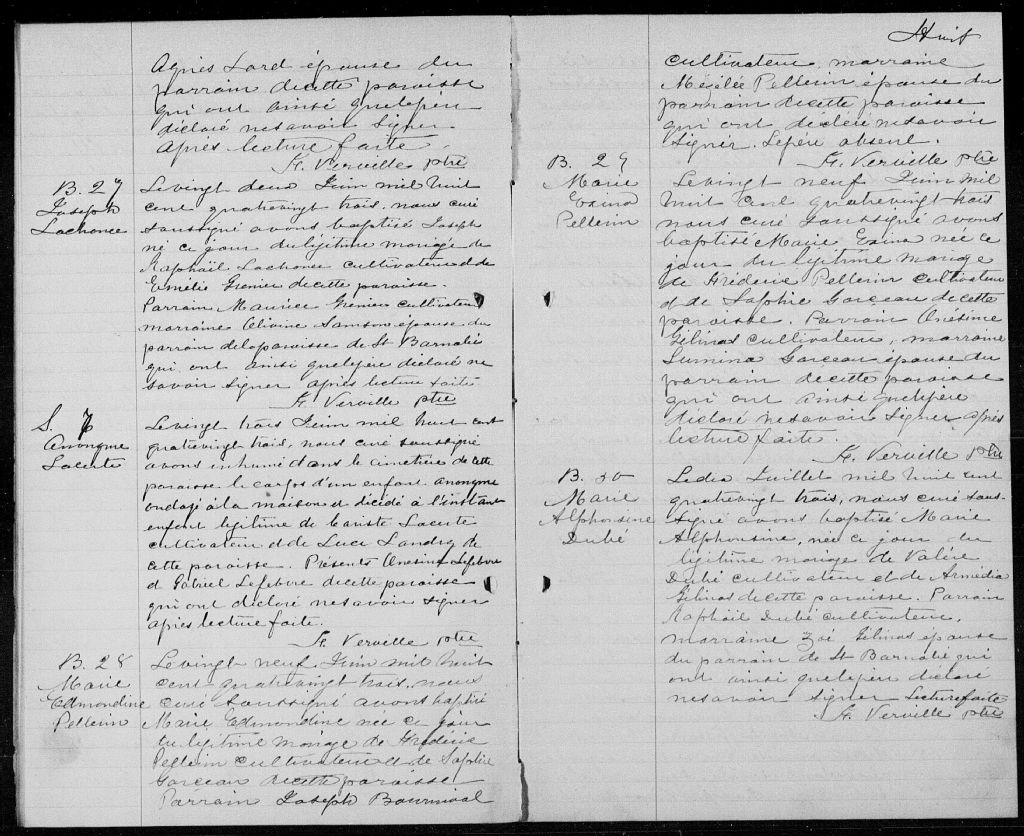 Agnès Lord épouse du
parrain de cette paroisse
qui ont ainsi que le père
déclaré ne savoir signer
Après lecture faite.
H. Verville ptre
B. 27
Joseph
Lachance
Le vingt deux Juin mil huit
cent quatrevingt trois, nous curé
soussigné avons baptisé Joseph
né ce jour du légitime mariage de
Raphaël Lachance cultivateur et de
Emélie Grenier de cette paroisse.
Parrain Maurice Grenier cultivateur
marraine Olivine Samson épouse du
parrain de la paroisse de St Barnabé
qui ont ainsi que le père déclaré ne
savoir signer après lecture faite
H. Verville ptre
S. 7
Anonyme
Lacerte
Le vingt trois Juin mil huit cent
quatrevingt trois, nous curé soussigné
avons inhumé dans le cimetière de cette
paroisse le corps d'un enfant anonyme
ondoyé à la maison et décédé à l'instant
enfant légitime de Evariste Lacerte
cultivateur et de Luce Landry de
cette paroisse. Présents Onesime Lefebvre
et Gabriel Lefebvre de cette paroisse
qui ont déclaré ne savoir signer
après lecture faite.
H. Verville ptre
B. 28
Marie
Edmondine
Pellerin
Le vingt neuf Juin mil huit
cent quatrevingt trois, nous
curé soussigné avons baptisé
Marie Edmondine née ce jour
du légitime mariage de Hréderie
Pellerin cultivateur et de Sophie
Garceau de cette paroisse
Parrain Joseph Bournival
Huit
cultivateur, marraine
Mézélée Pellerin épouse du
parrain de cette paroisse
qui ont déclaré ne savoir
signer. Le père absent.
H. Verville ptre
B. 29
Marie
Exina
Pellerin
Le vingt neuf Juin mil
huit cent quatrevingt trois
nous curé soussigné avons
baptisé Marie Exina née ce
jour du légitime mariage
de Hréderie Pellerin cultivateur
et de Sophie Garceau de cette
paroisse. Parrain Onésime
Gélinas cultivateur, marraine
Lumina Garceau épouse du
parrain de cette paroisse
qui ont ainsi que le père
déclaré ne savoir signer après
lecture faite.
H. Verville ptre
B. 30
Marie
Alphonsine
Dubé
Le dix Juillet mil huit cent
quatrevingt trois, nous curé sous-
signé avons baptisé Marie
Alphonsine, née ce jour du
légitime mariage de Valère
Dubé cultivateur et de Armédia
Gélinas de cette paroisse. Parrain
Raphaël Dubé cultivateur,
marraine Zoé Gélinas épouse
du parrain de St Barnabé qui
ont ainsi que le père déclaré
ne savoir signer Lecture faite
H. Verville ptre